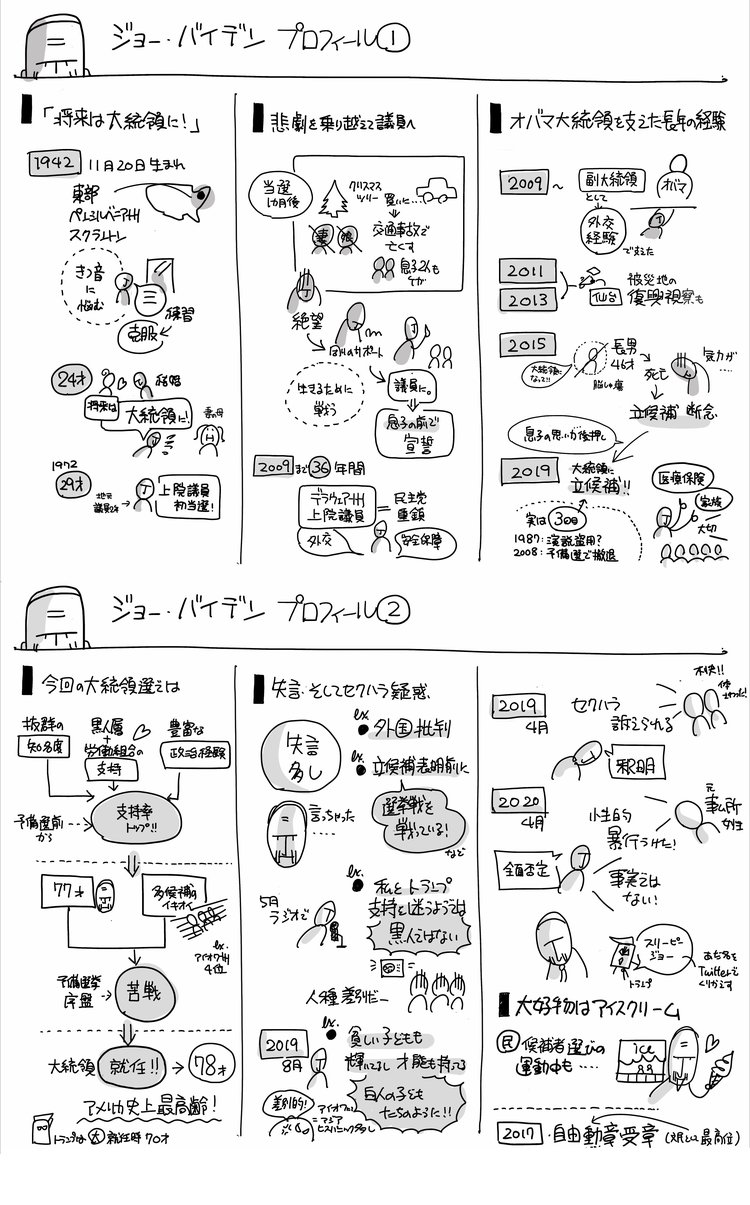 ジョー・バイデン プロフィール①
「将来は大統領に!」
1942 11月20日生まれ
東部
ペンシルベニア州
スクラントン
きつ音
に
悩む
練習
克服
24才 結婚
将来は
大統領に!
妻の母
1972
29才
地元
議員→
上院議員
初当選!
悲劇を乗り越えて議員へ
当選
1カ月後
クリスマス
ツリー
買いに…
妻 娘
交通事故で
亡くす
息子2人も
ケガ
絶望
周りのサポート
生きるために
戦おう
議員に。
息子の前で
宣誓
2009まで36年間
デラウェア州
上院議員
=民主党
重鎮
外交
安全保障
オバマ大統領を支えた長年の経験
2009〜
副大統領
として
オバマ
外交
経験
で支えた
2011
2013
仙台
被災地の
復興視察も
2015
大統領に
なって!!
長男
46才
脳しゅ瘍
死亡
気力が…
立候補 断念
息子の思いが後押し
2019
大統領に
立候補!!
医療保険
家族
大切
実は3回目
1987:演説盗用?
2008:予備選で撤退
ジョー・バイデン プロフィール②
今回の大統領選では
抜群の
知名度
黒人層
+
労働組合の
支持
豊富な
政治経験
予備選前
から
支持率
トップ!!
77才
多候補の
イキオイ
ex.
アイオワ州
4位
予備選挙
序盤
苦戦
大統領 就任!!→78才
アメリカ史上最高齢!
トランプは 大 就任時 70才
失言・そしてセクハラ疑惑
失言
多し
言っちゃった
……
ex.
外国批判
ex.
立候補表明前に
選挙戦を
戦っている!
など
5月
ラジオで
私とトランプ
支持を迷うようでは
黒人ではない
人種差別だー
ex.
2019
8月
貧しい子どもも
輝いてるし 才能も持ってる
白人の子ども
たちのように!!
差別的!
アイオワ州
=アジア
ヒスパニック多し
2019
4月
セクハラ
訴えられる
不快!!
体
さわった!!
釈明
2020
4月
性的
暴行うけた!
元
事ム所
女性
全面否定
事実では
ない!
スリーピー
ジョー
トランプ
あだ名を
Twitterで
くりかえす
大好物はアイスクリーム
民 候補者選びの
運動中も……
ice
2017・自由勲章受章(文民として最高位)